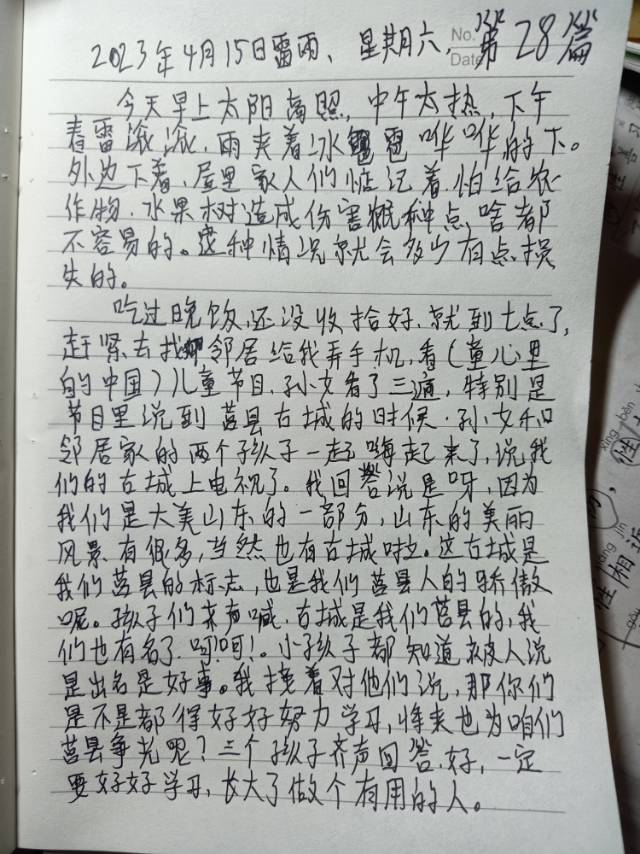 No.
Date
2023年4月15日雷雨、星期六, 第28篇
今天早上太阳高照, 中午太热, 下午
春雷滚滚, 雨夹着冰雹哗哗的下。
外边下着, 屋里家人们惦记着, 怕给农
作物, 水果树造成伤害, 种点啥都
不容易的。这种情况就会多少有点损
失的。
吃过晚饭, 还没收拾好, 就到七点了,
赶紧去找邻居给我弄手机, 看(童心里
的中国)儿童节目, 孙女看了三遍, 特别是
节目里说到莒县古城的时候, 孙女和
邻居家的两个孩子一起嗨起来了, 说我
们的古城上电视了。我回答说是呀, 因为
我们是大美山东的一部分, 山东的美丽
风景有很多, 当然也有古城啦。这古城是
我们莒县的标志, 也是我们莒县人的骄傲
呢。孩子们来声喊, 古城是我们莒县的, 我
们也有名了, 呵呵!。小孩子都知道被人说
是出名是好事。我接着对他们说, 那你们
是不是都得好好努力学习, 将来也为咱们
莒县争光呢? 三个孩子齐声回答, 好, 一定
要好好学习, 长大了做个有用的人。